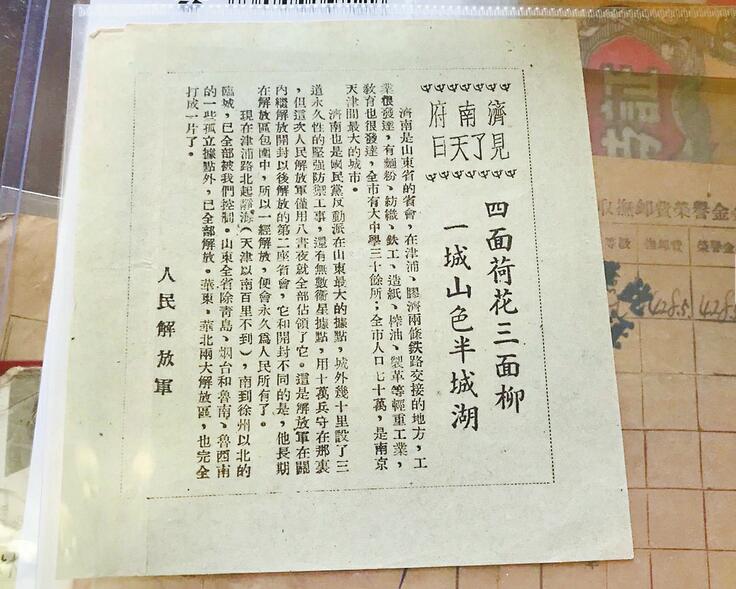 濟南府
見了天日
四面荷花三面柳
一城山色半城湖
濟南是山東省的省會，在津浦、膠濟兩條鉄路交接的地方，工
業很發達，有麵粉、紡織、鉄工、造紙、榨油、製革等輕重工業，
敎育也很發達，全市有大中學三十餘所；全市人口七十萬，是南京
天津間最大的城市。
濟南也是國民黨反動派在山東最大的據點，城外幾十里設了三
道永久性的堅強防禦工事，還有無數衞星據點，用十萬兵守在那裏
，但這次人民解放軍僅用八晝夜就全部佔領了它。這是解放軍在關
內繼解放開封以後解放的第二座省會，它和開封不同的是，他長期
在解放區包圍中，所以一經解放，便會永久爲人民所有了。
現在津浦路北起靜海（天津以南百里不到），南到徐州以北的
臨城，已全部被我們控制。山東全省除靑島、烟台和魯南、魯西南
的一些孤立據點外，已全部解放。華東、華北兩大解放區，也完全
打成一片了。
人民解放軍
取撫卹費榮譽金
撫卹費 榮譽金
428.5 428.5